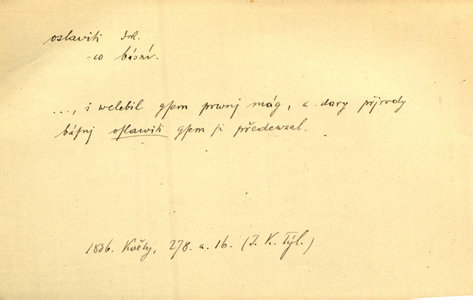 oslaviti dok.
-co básní.
..., i welebil gsem prwnj mág, a dary přjrody
básnj oslawiti gsem si předewzal.
1836. Květy, 278. a. 16. (J. K. Tyl.)